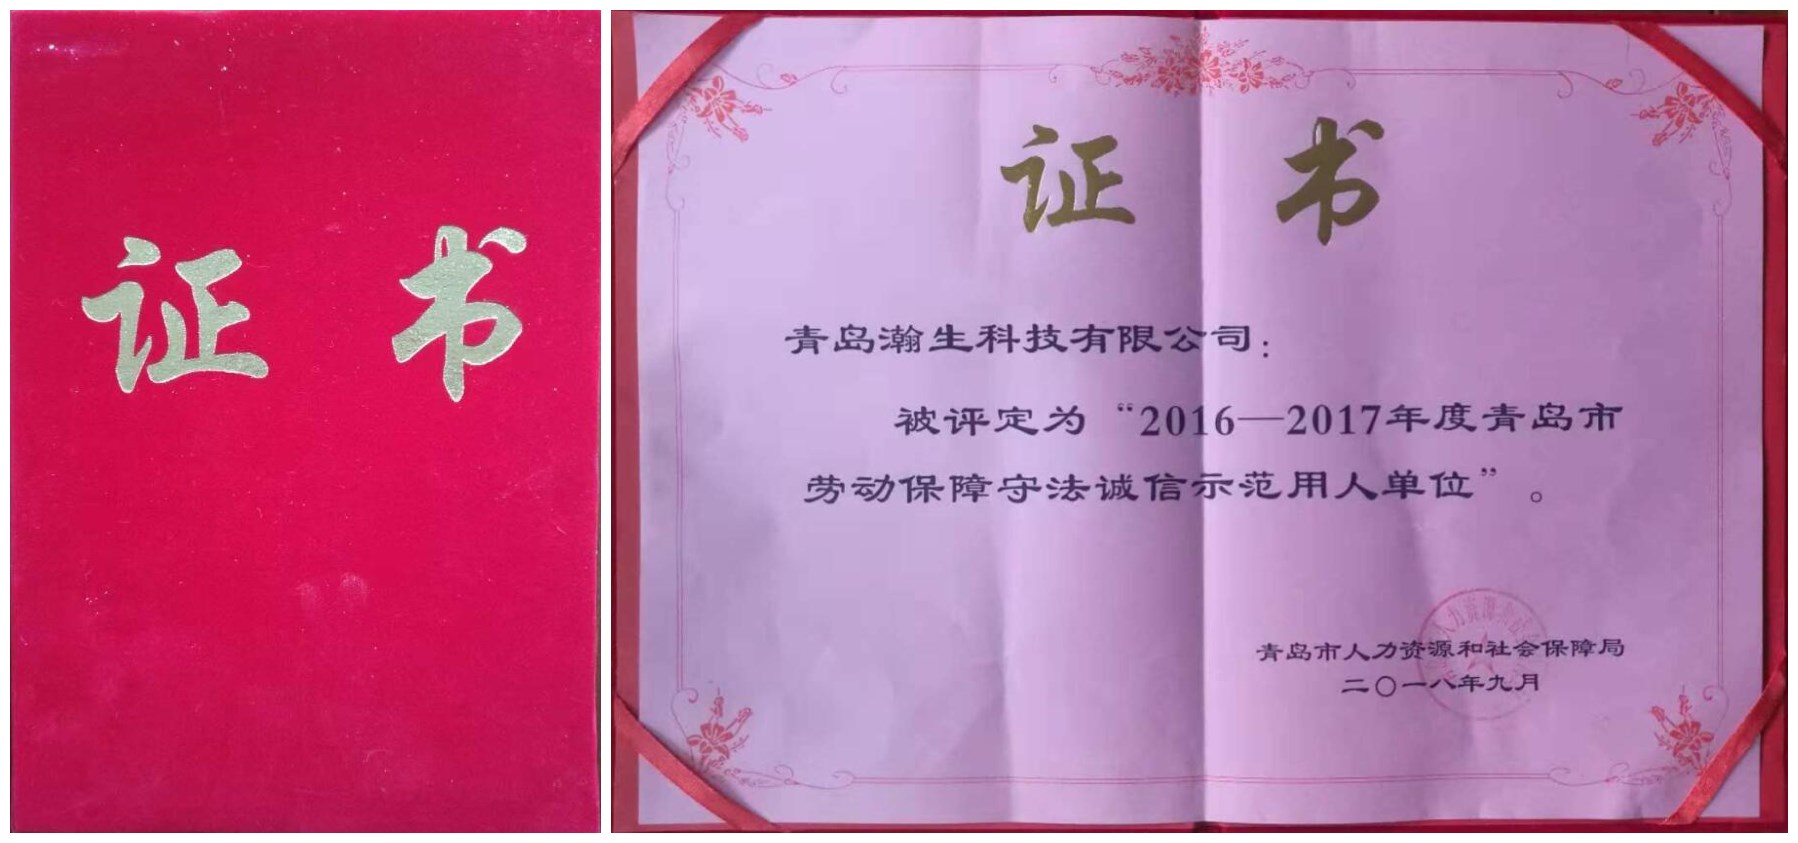 证书
证书
青岛瀚生科技有限公司：
被评定为“2016—2017年度青岛市
劳动保障守法诚信示范用人单位”。
青岛市人力资源和社会保障局
二〇一八年九月